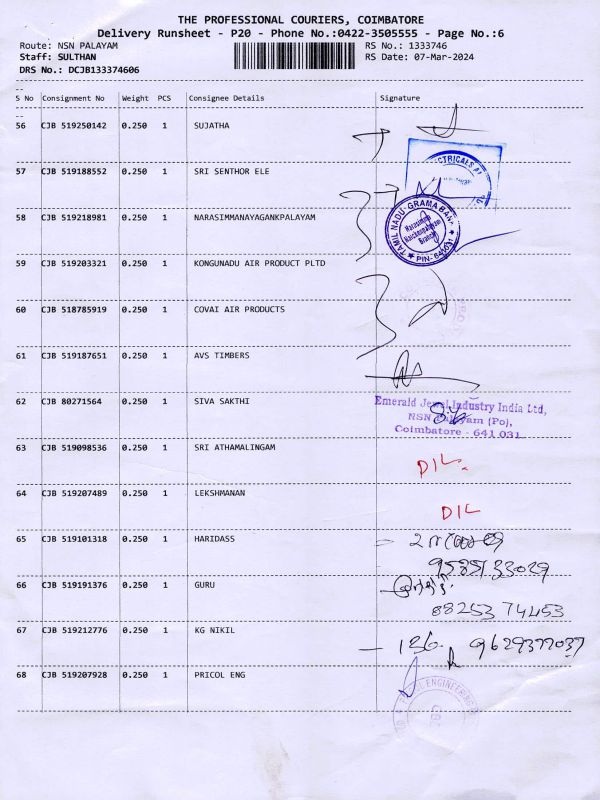 THE PROFESSIONAL COURIERS, COIMBATORE
Delivery Runsheet - P20 - Phone No.:0422-3505555 - Page No.:6
Route: NSN PALAYAM RS No.: 1333746
Staff: SULTHAN RS Date: 07-Mar-2024
DRS No.: DCJB133374606
--
S No Consignment No Weight PCS Consignee Details Signature
--
56 CJB 519250142 0.250 1 SUJATHA
57 CJB 519188552 0.250 1 SRI SENTHOR ELE
58 CJB 519218981 0.250 1 NARASIMMANAYAGANKPALAYAM
TAMIL NADU GRAMA BANK
Narasimma
Naickenpalayam
Branch
59 CJB 519203321 0.250 1 KONGUNADU AIR PRODUCT PLTD
60 CJB 518785919 0.250 1 COVAI AIR PRODUCTS
61 CJB 519187651 0.250 1 AVS TIMBERS
62 CJB 80271564 0.250 1 SIVA SAKTHI
Emerald Jewel Industry India Ltd,
NSN Palayam (Po),
Coimbatore - 641 031
63 CJB 519098536 0.250 1 SRI ATHAMALINGAM
DIL.
64 CJB 519207489 0.250 1 LEKSHMANAN
DIL
65 CJB 519101318 0.250 1 HARIDASS
66 CJB 519191376 0.250 1 GURU
88253 74453
67 CJB 519212776 0.250 1 KG NIKIL
68 CJB 519207928 0.250 1 PRICOL ENG